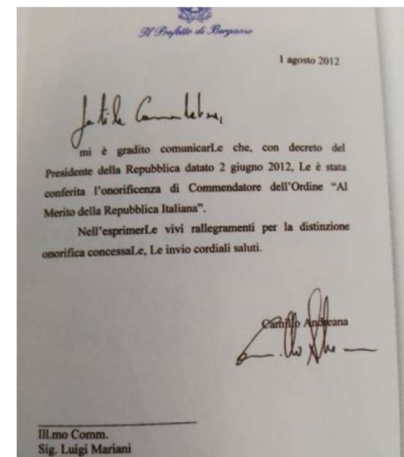 Il Prefetto di Bergamo
1 agosto 2012
Gentile Commendatore,
mi è gradito comunicarLe che, con decreto del
Presidente della Repubblica datato 2 giugno 2012, Le è stata
conferita l'onorificenza di Commendatore dell'Ordine “Al
Merito della Repubblica Italiana”.
Nell'esprimerLe vivi rallegramenti per la distinzione
onorifica concessaLe, Le invio cordiali saluti.
Camillo Andreana
Ill.mo Comm.
Sig. Luigi Mariani